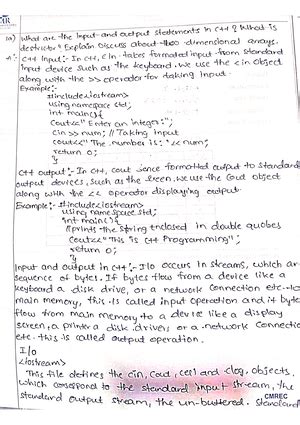 10) What are the Input and output statements in C++? What is
destructor? Explain discuss about two dimensional arrays.
C++ Input:- In C++, Cin takes formated input from standard
input device such as the keyboard. we use the cin object
along with the >> operator for taking input.
Example:-
#include<iostream>
using namespace std;
int main(){
cout<<"Enter an integer:";
cin >> num; // Taking input
cout<<"The number is: "<<num;
return 0;
}
C++ output :- In C++, cout sence formatted output to standard
output devices, such as the screen. we use the cout object
along with the << operator displaying output.
Example:- #include<iostream>
using namespace std;
int main(){
//prints the string enclosed in double quotes
Cout<<"This is C++ Programming";
return 0;
}
Input and output in C++ :- I/o occurs in streams, which are
sequence of bytes. If bytes flow from a device like a
keyboard a disk drive, or a network connection etc. to
main memory, this is called input operation and it byte
flow from main memory to a device like a display
screen, a printer a disk drive, or a network connection
etc. this is called output operation.
I/o
<iostream>
This file defines the cin, cout, cerr and clog, objects,
which correspond to the standard input stream, the
standard output stream, the un-buffered. standard
CMREC